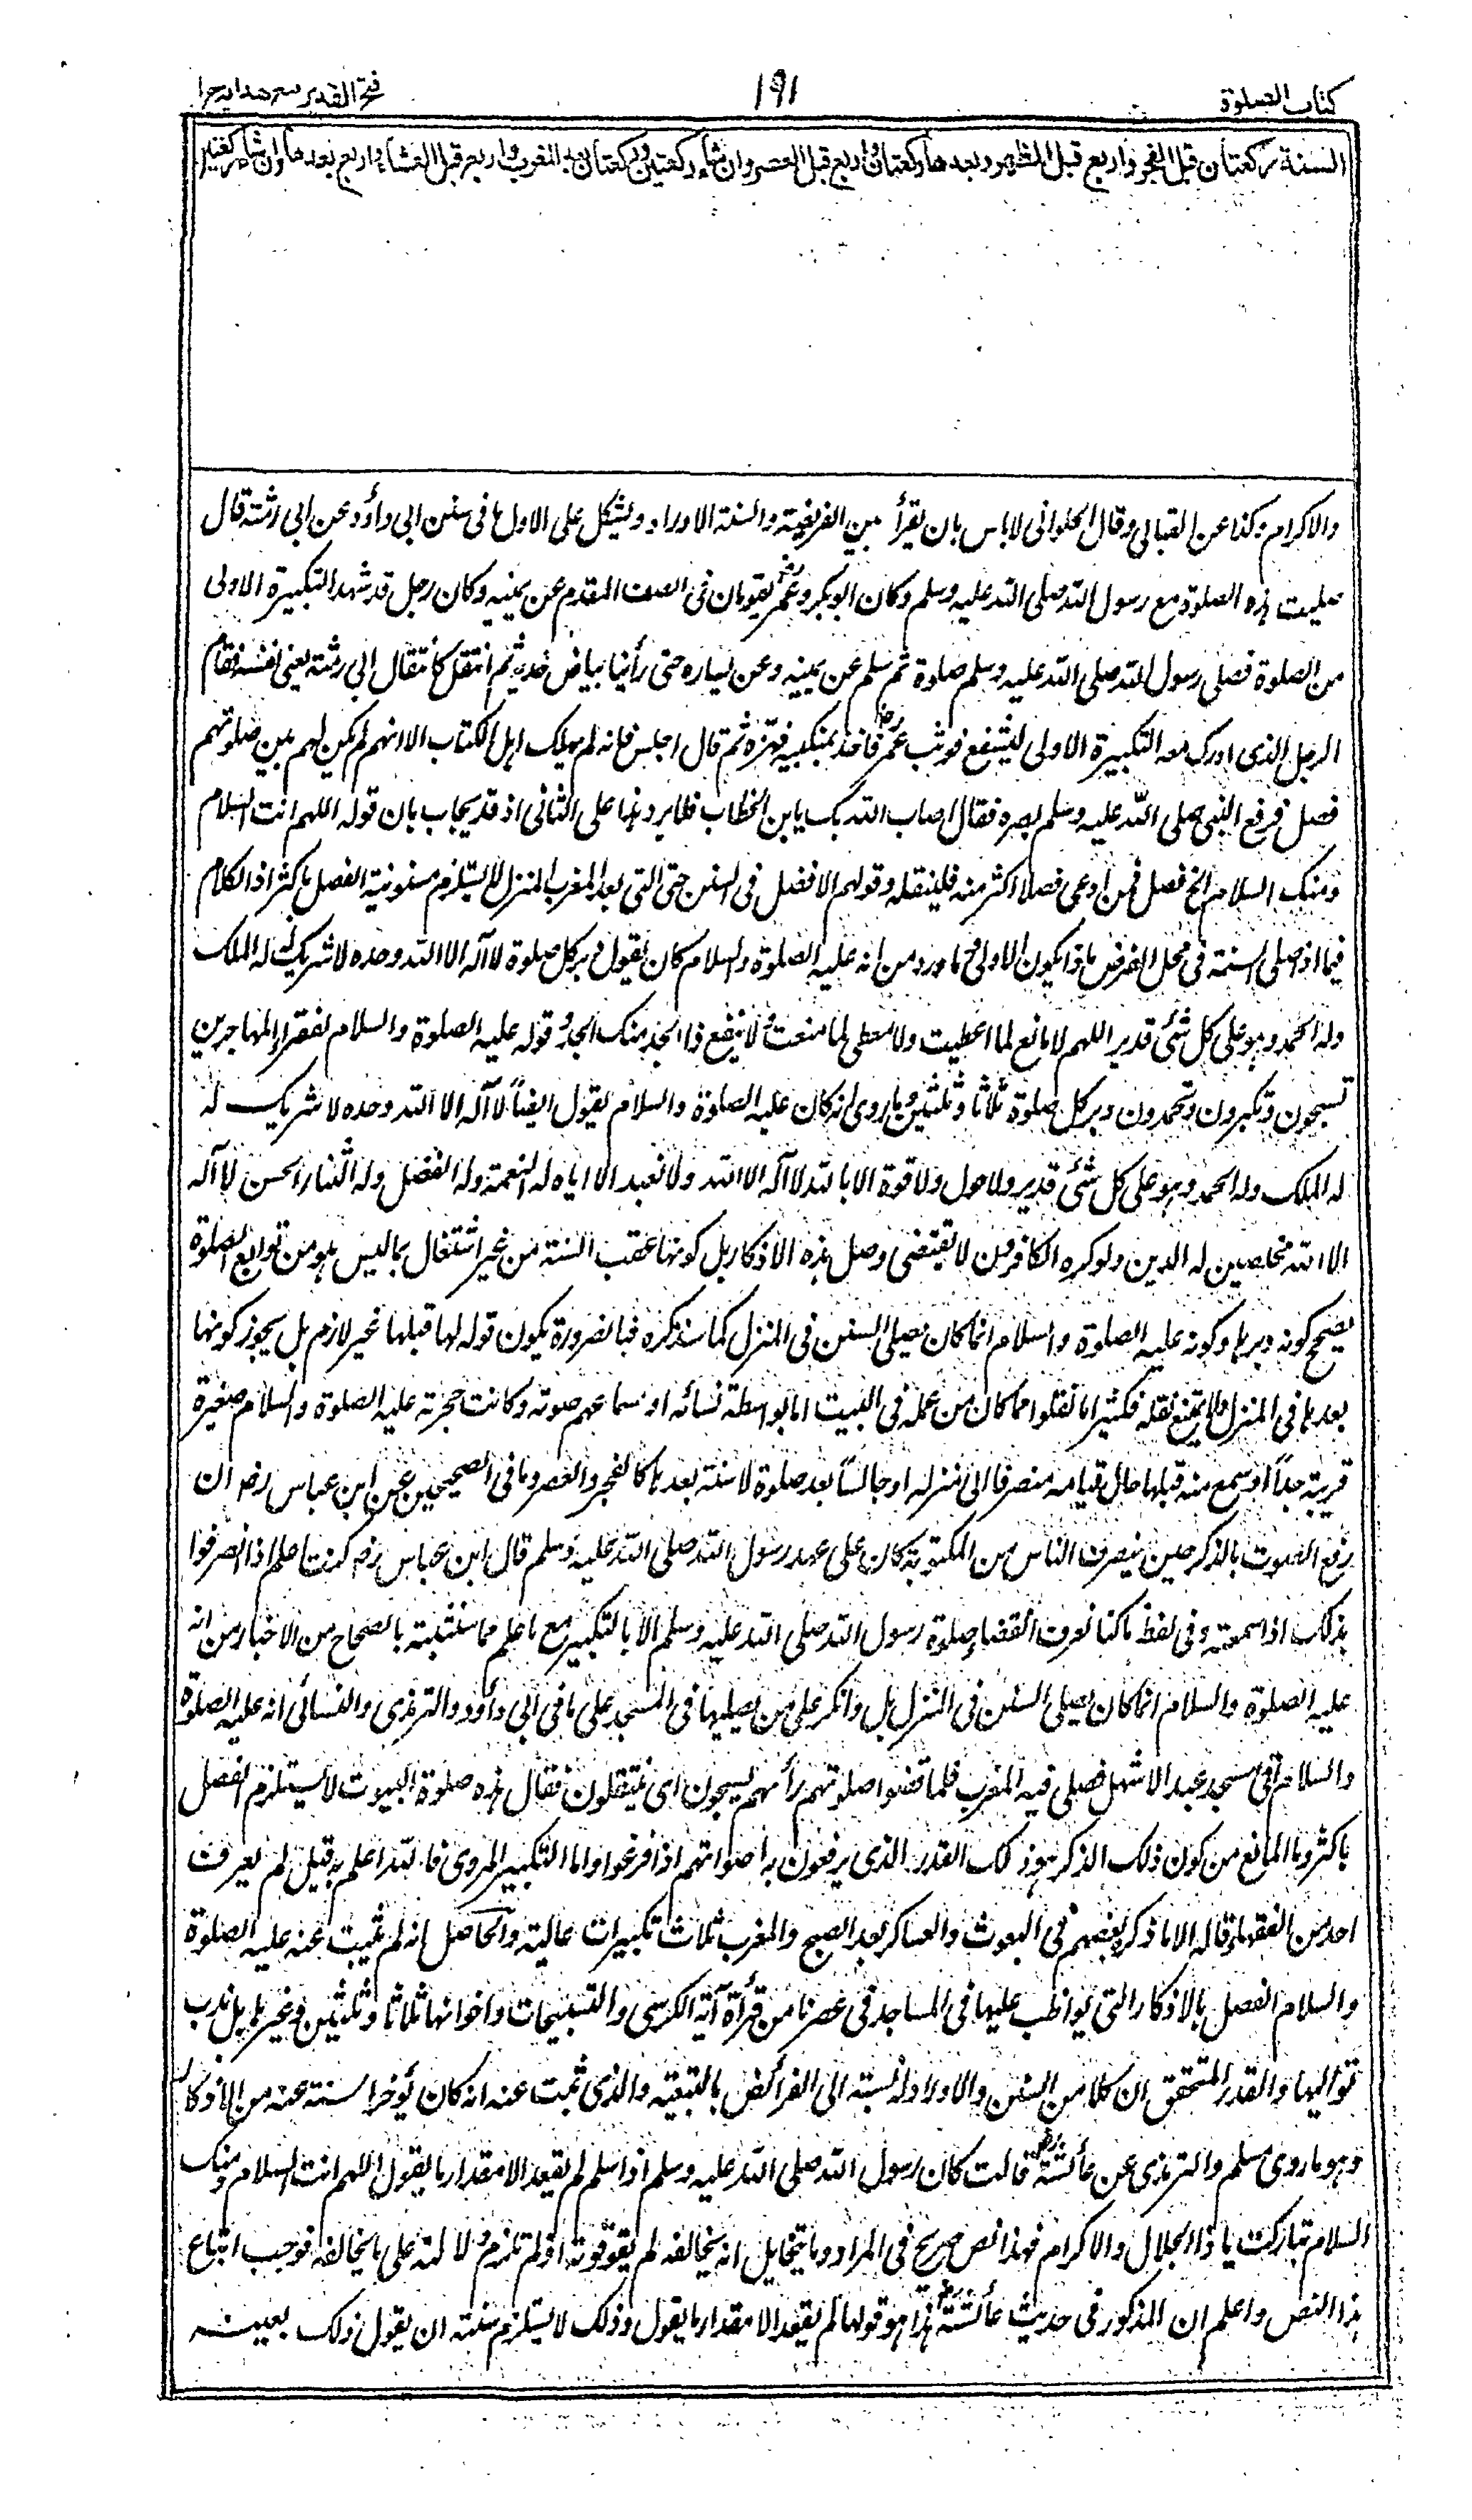 كتاب الصلوة
١٩١
فتح القدير مع هدايه جرا
السنة ركعتان قبل الفجر واربع قبل الظهر وبعدها ركعتان واربع قبل العصر وان شاء ركعتين وركعتان بعد المغرب واربع قبل العشاء واربع بعدها وان شاء ركعتين
والاكرام وكذا عن البقالى وقال الحلوانى لاباس بان يقرأ بين الفريضة والسنة الاوراد ويشكل على الاول ما فى سنن ابى داؤد عن ابى رمثة قال
صليت هذه الصلوة مع رسول الله صلى الله عليه وسلم وكان ابوبكر وعمر رض يقومان فى الصف المقدم عن يمينه وكان رجل قد شهد التكبيرة الاولى
من الصلوة فصلى رسول الله صلى الله عليه وسلم صلوة ثم سلم عن يمينه وعن يساره حتى رأينا بياض خديه ثم انتقل كانتقال ابى رمثة يعنى نفسه فقام
الرجل الذى ادرك معه التكبيرة الاولى ليشفع فوثب عمر رض فاخذ بمنكبيه فهزه ثم قال اجلس فانه لم يهلك اهل الكتاب الا انهم لم يكن لهم بين صلوتهم
فصل فرفع النبى صلى الله عليه وسلم بصره فقال اصاب الله بك يابن الخطاب ظاهر دنها على الثانى اذ قد يجاب بان قوله اللهم انت السلام
ومنك السلام الخ فصل فمن ادعى فصلا اكثر منه فلينقله وقولهم الافضل فى السنن حتى التى بعد المغرب المنزل لايستلزم مسنونية الفصل باكثر اذ الكلام
فيما اذا صلى السنة فى محل الفرض ماذا يكون الاولى وما ورد من انه عليه الصلوة والسلام كان يقول دبر كل صلوة لا آله الا الله وحده لا شريك له له الملك
وله الحمد وهو على كل شئ قدير اللهم لا مانع لما اعطيت ولا معطى لما منعت ولا ينفع ذا الجد منك الجد وقوله عليه الصلوة والسلام لفقراء المهاجرين
تسبحون وتكبرون وتحمدون دبر كل صلوة ثلاثا وثلثين وما روى انه كان عليه الصلوة والسلام يقول ايضاً لا آله الا الله وحده لا شريك له
له الملك وله الحمد وهو على كل شئ قدير ولا حول ولا قوة الا بالله لا آله الا الله ولا نعبد الا اياه له النعمة وله الفضل وله الثناء الحسن لا آله
الا الله مخلصين له الدين ولو كره الكافرون لا يقتضى وصل هذه الاذكار بل كونها عقب السنة من غير اشتغال بما ليس هو من توابع الصلوة
يصحح كونه دبرها وكونه عليه الصلوة والسلام انما كان يصلى السنن فى المنزل كما سنذكره فبالضرورة يكون قوله لها قبلها غير لازم بل يجوز كونها
بعدها فى المنزل ولا يمتنع نقله فكثيرا ما نقلوا مما كان من عمله فى البيت اما بواسطة نسائه او سماعهم صوته وكانت حجرته عليه الصلوة والسلام صغيرة
قريبة جداً او سمع منه قبلها حال قيامه منصرفا الى منزله او جالساً بعد صلوة لا سنة بعدها كالفجر والعصر وما فى الصحيحين عن ابن عباس رض ان
رفع الصوت بالذكر حين ينصرف الناس من المكتوبة كان على عهد رسول الله صلى الله عليه وسلم قال ابن عباس رض كنت اعلم اذا انصرفوا
بذلك اذا سمعته وفى لفظ ما كنا نعرف انقضاء صلوة رسول الله صلى الله عليه وسلم الا بالتكبير مع ما علم مما سنثبته بالصحاح من الاخبار من انه
عليه الصلوة والسلام انما كان يصلى السنن فى المنزل بل وانكر على من يصليها فى المسجد على ما فى ابى داؤد والترمذى والنسائى انه عليه الصلوة
والسلام اتى مسجد عبد الاشهل فصلى فيه المغرب فلما قضوا صلوتهم رأهم يسبحون اى يتنفلون فقال هذه صلوة البيوت لايستلزم الفصل
باكثر وما المانع من كون ذلك الذكر هو ذلك القدر الذى يرفعون به اصواتهم اذا فرغوا واما التكبير المروى فالله اعلم به قيل لم يعرف
احد من الفقهاء قاله الا ما ذكره بعضهم فى البعوث والعساكر بعد الصبح والمغرب ثلاث تكبيرات عالية والحاصل انه لم يثبت عنه عليه الصلوة
والسلام الفصل بالاذكار التى يواظب عليها فى المساجد فى عصرنا من قرأة آية الكرسى والتسبيحات واخواتها ثلاثا وثلثين وغيرها بل ندب
هو اليها والقدر المتحقق ان كلا من السنن والاوراد له نسبة الى الفرائض بالتبعية والذى ثبت عنه انه كان يؤخر السنة عنه من الاذكار
وهو ما روى مسلم والترمذى عن عائشة رض قالت كان رسول الله صلى الله عليه وسلم اذا سلم لم يقعد الا مقدار ما يقول اللهم انت السلام ومنك
السلام تباركت يا ذا الجلال والاكرام فهذا نص صريح فى المراد وما يتخايل انه يخالفه لم يقو قوته او لم تلزم دلالته على ما يخالفه فوجب اتباع
هذا النص واعلم ان المذكور فى حديث عائشة رض هذا هو قولها لم يقعد الا مقدار ما يقول وذلك لا يستلزم سنته ان يقول ذلك بعينه